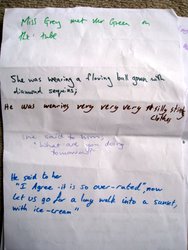 Miss Grey met Mr Green on
the tube
She was wearing a flowing ball gown with
diamond sequins,
He was wearing very very very silly stinky
clothes
She said to him,
"What are you doing
tomorrow?"
He said to her
"I Agree - it is so over-rated", now
let us go for a long walk into a sunset,
with ice-cream"